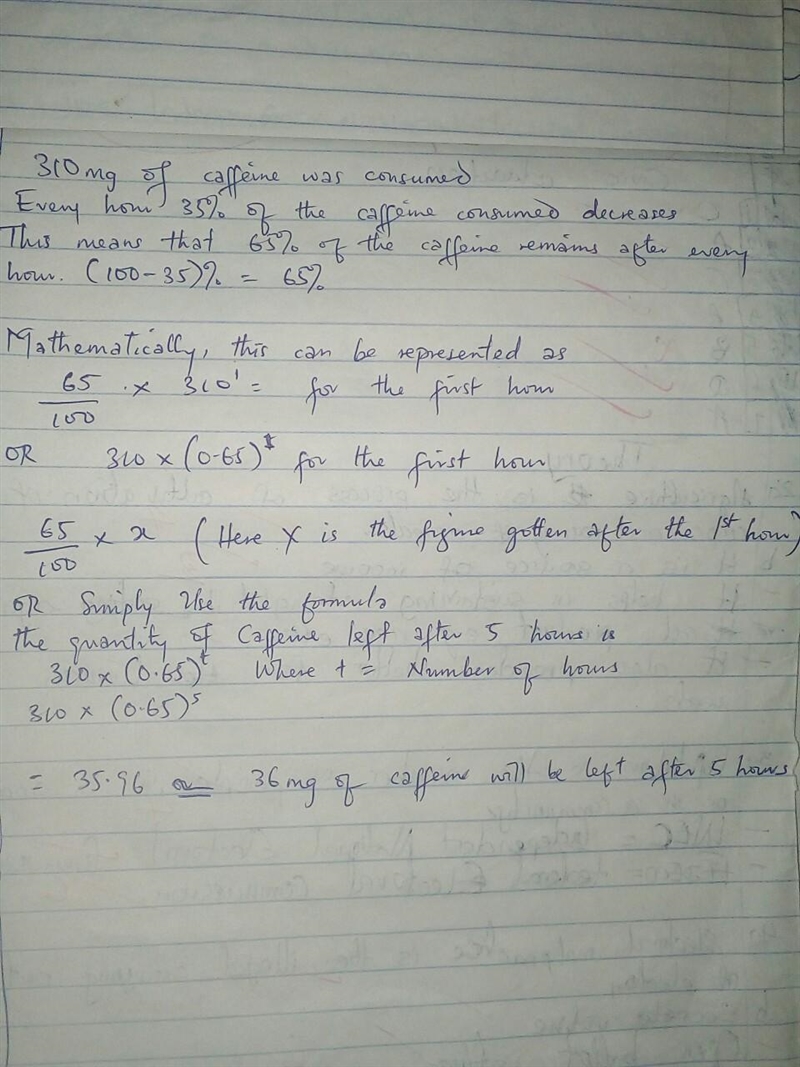 310mg of caffeine was consumed
Every hour 35% of the caffeine consumed decreases
This means that 65% of the caffeine remains after every
hour. (100-35)% = 65%
Mathematically, this can be represented as
65/100 × 310¹ = for the first hour
OR 310 × (0.65)¹ for the first hour
65/100 × x (Here X is the figure gotten after the 1st hour)
OR Simply Use the formula
the quantity of Caffeine left after 5 hours is
310 × (0.65)ᵗ Where t = Number of hours
310 × (0.65)⁵
= 35.96 or 36mg of caffeine will be left after 5 hours